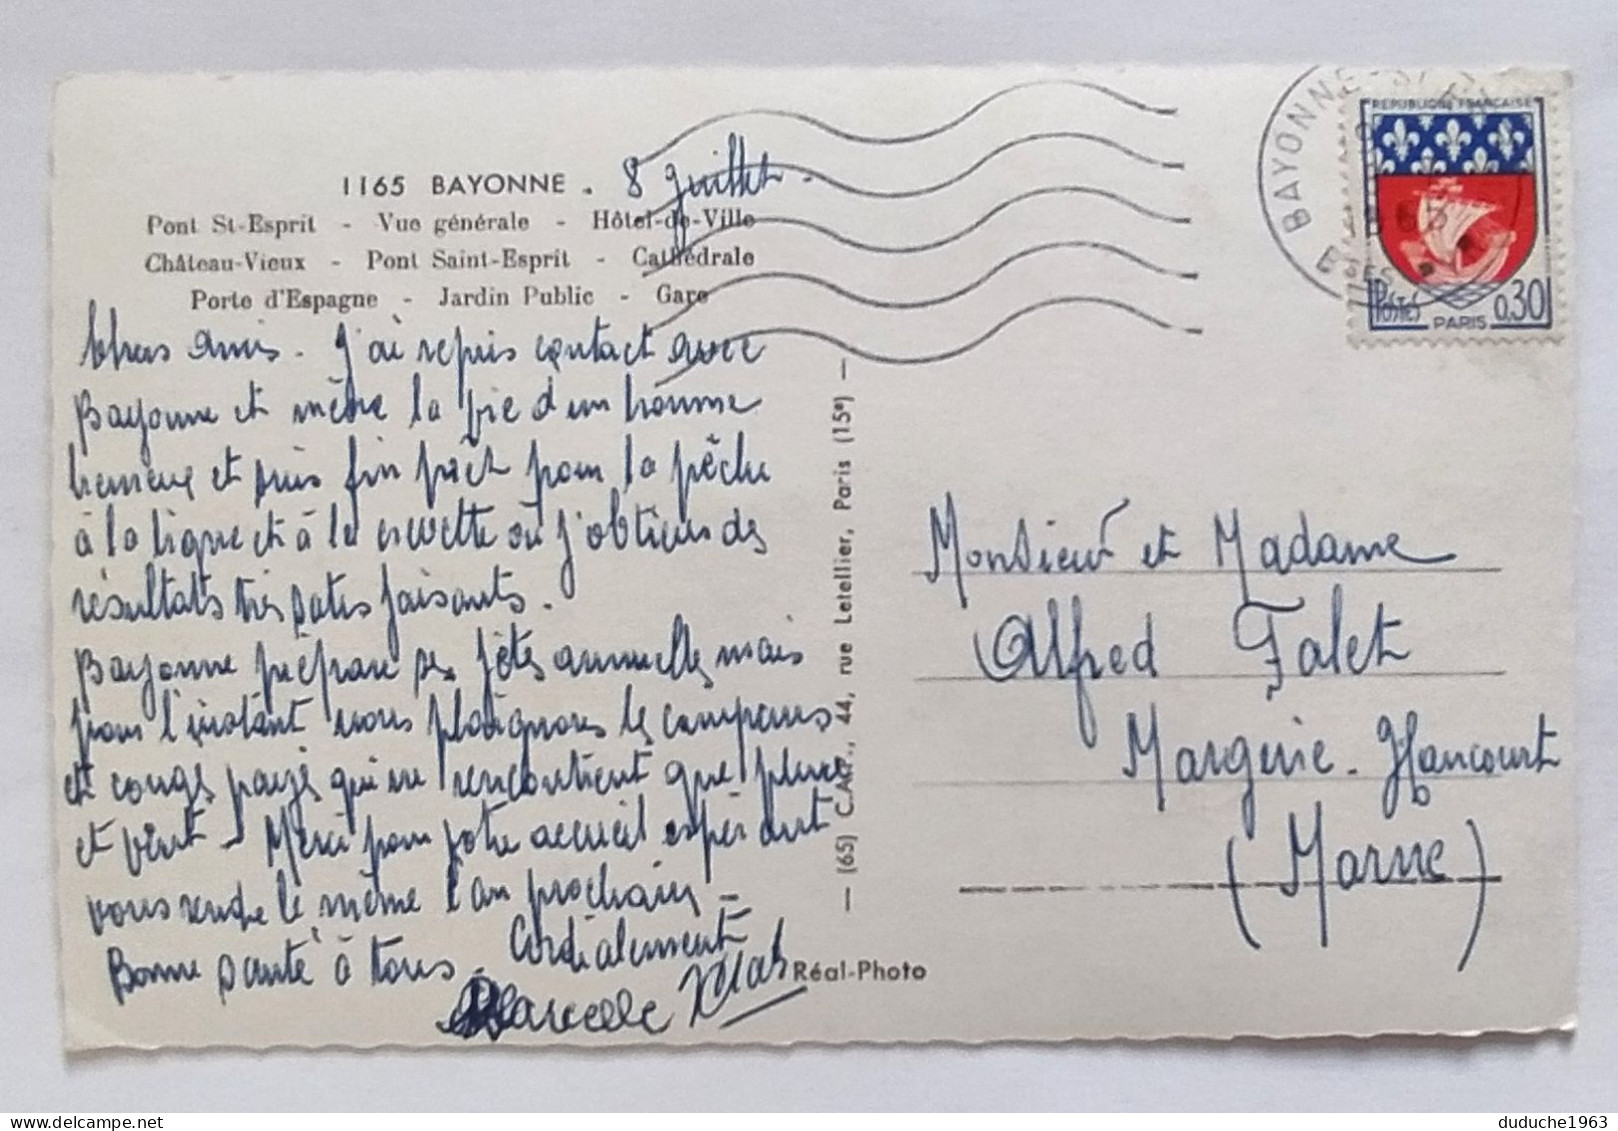 1165 BAYONNE . 8 Juillet .
Pont St-Esprit - Vue générale - Hôtel-de-Ville
Château-Vieux - Pont Saint-Esprit - Cathédrale
Porte d'Espagne - Jardin Public - Gare
Chers amis. J'ai repris contact avec
Bayonne et mène la vie d'un homme
heureux et suis fin prêt pour la pêche
à la ligne et à la où j'obtiens des
résultats très satisfaisants.
Bayonne prépare ses fêtes annuelles mais
pour l'instant nous plaignons les campeurs
et congés payés qui ne rencontrent que pluie
et vent - Merci pour votre accueil espérant
vous rendre le même l'an prochain -
Bonne santé à tous - Cordialement
Marcelle
— (65) C.A.P., 44, rue Letellier, Paris (15e) —
Réal-Photo
BAYONNE
REPUBLIQUE FRANÇAISE
POSTES
PARIS
0,30
Monsieur et Madame
Alfred Falet
Margerie - Hancourt
(Marne)
duduche1963